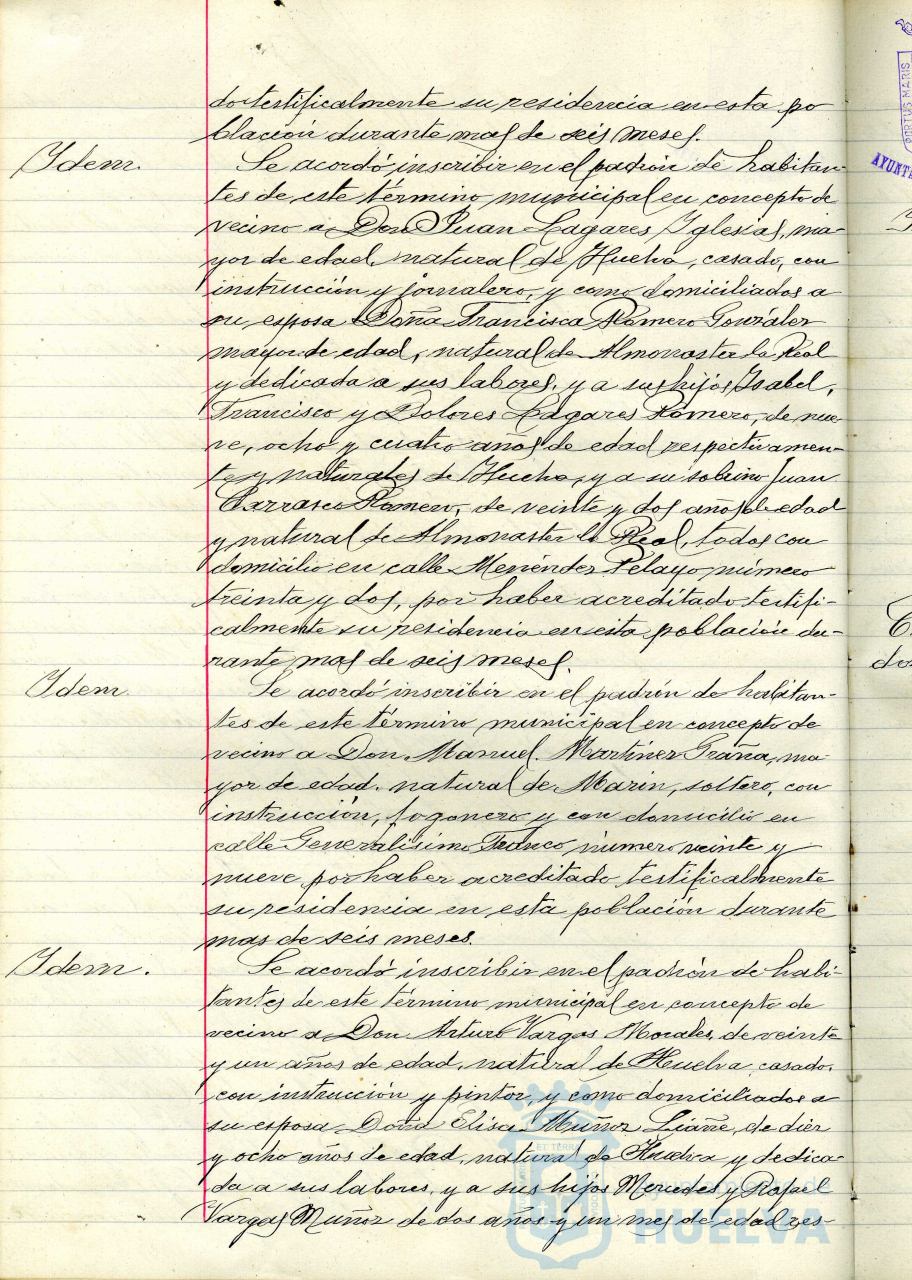 do testificalmente su residencia en esta po
blación durante mas de seis meses.
Idem.
Se acordó inscribir en el padrón de habitan-
tes de este término municipal en concepto de
vecino a Don Juan Lagares Iglesias, ma-
yor de edad, natural de Huelva, casado, con
instrucción y jornalero, y como domiciliados a
su esposa Doña Francisca Romero González
mayor de edad, natural de Almonaster la Real
y dedicada a sus labores, y a sus hijos Isabel,
Francisco y Dolores Lagares Romero, de nue-
ve, ocho y cuatro años de edad respectivamen-
te y naturales de Huelva, y a su sobrino Juan
Carrasco Romero, de veinte y dos años de edad
y natural de Almonaster la Real, todos con
domicilio en calle Menéndez Pelayo número
treinta y dos, por haber acreditado testifi-
calmente su residencia en esta población du-
rante mas de seis meses.
Idem.
Se acordó inscribir en el padrón de habitan-
tes de este término municipal en concepto de
vecino a Don Manuel Martínez Graña, ma-
yor de edad, natural de Marin, soltero, con
instrucción, fogonero y con domicilio en
calle Generalísimo Franco, número veinte y
nueve por haber acreditado testificalmente
su residencia en esta población durante
mas de seis meses.
Idem.
Se acordó inscribir en el padrón de habi-
tantes de este término municipal en concepto de
vecino a Don Arturo Vargas Morales, de veinte
y un años de edad, natural de Huelva, casado,
con instrucción y pintor, y como domiciliados a
su esposa Doña Elisa Muñoz de diez
y ocho años de edad, natural de Huelva y dedica-
da a sus labores, y a sus hijos Mercedes y Rafael
Vargas Muñoz de dos años y un mes de edad res-
PORTUS MARIS
AYUNTA
do
Ayuntamiento de
HUELVA